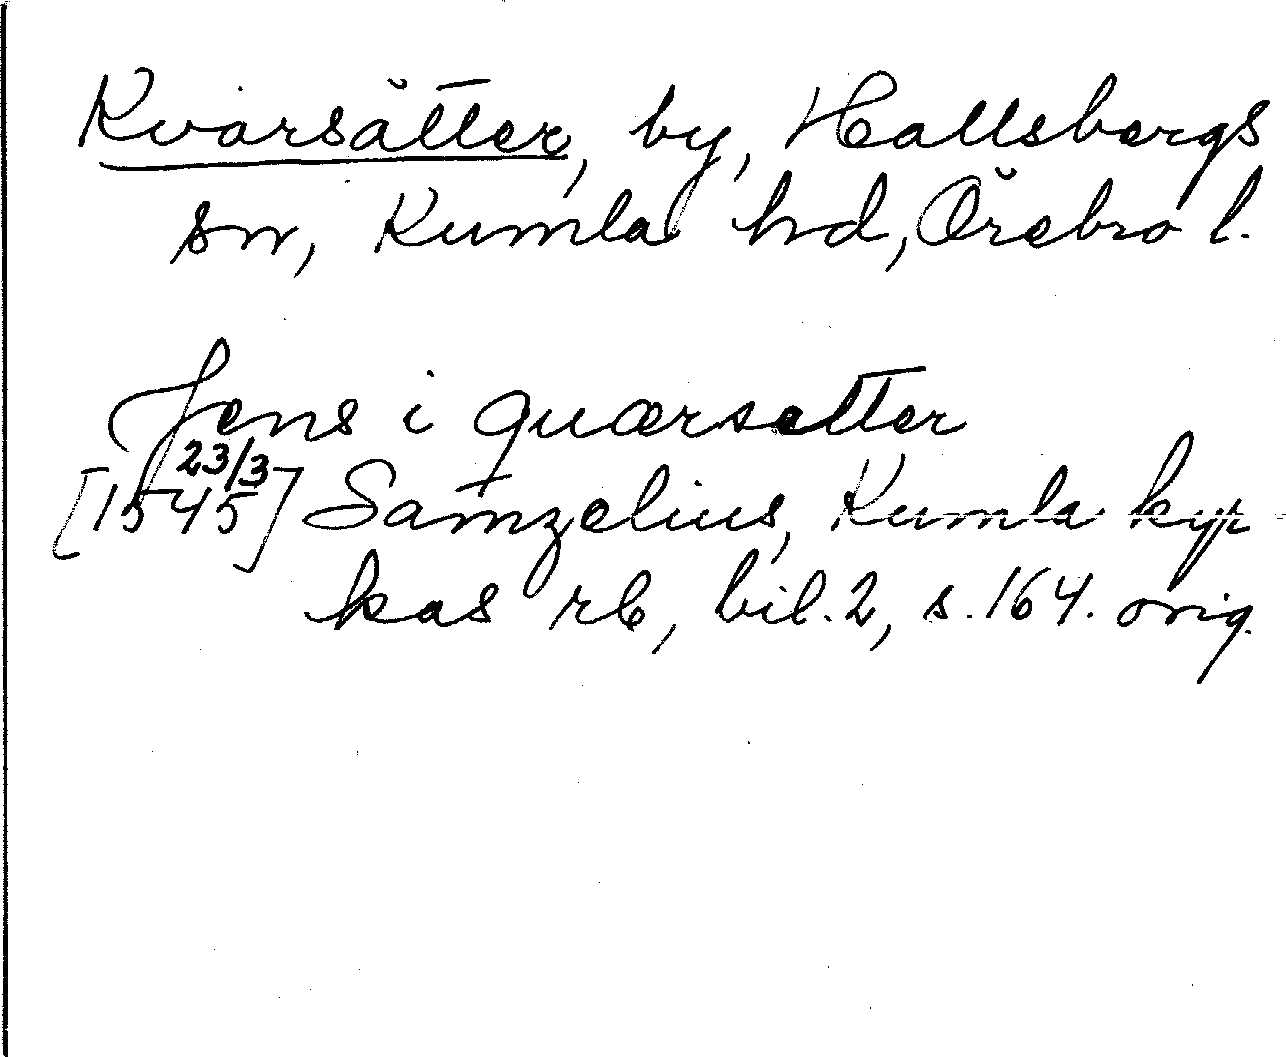 Kvarsätter, by, Hallsbergs
sn, Kumla hd, Örebro l.
Jens i quærsetter
23/3
[1545] Samzelius, Kumla kyr
kas rb, bil. 2, s. 164. orig.